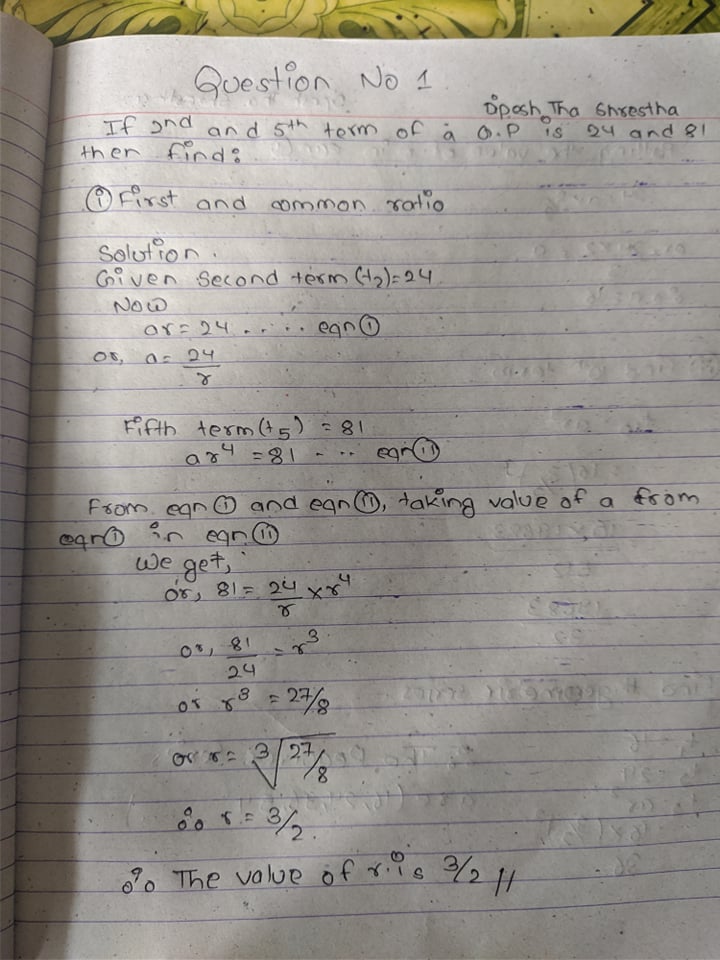 Question No 1
Dipesh Jha Shrestha
If 2nd and 5th term of a G.P is 24 and 81
then find:
① First and common ratio
Solution.
Given Second term (t₂)=24
Now
ar = 24 ..... eqn ①
or, a = 24/r
Fifth term (t₅) = 81
ar⁴ = 81 - .. eqn ⑪
From eqn ① and eqn ⑪, taking value of a from
eqn ① in eqn ⑪
We get,
or, 81 = 24/r × r⁴
or, 81/24 = r³
or r³ = 27/8
or r = ∛27/8
∴ r = 3/2.
∴ The value of r is 3/2 //